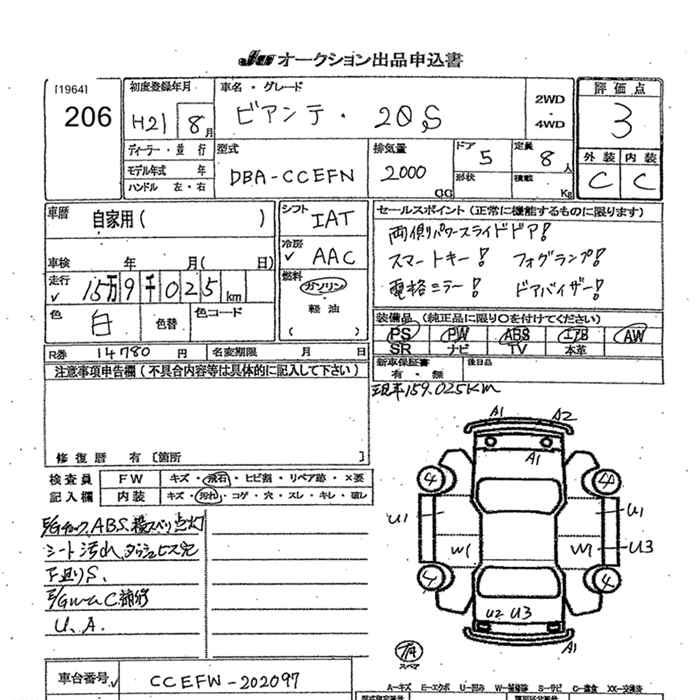 JU オークション出品申込書
[1964]
206
初度登録年月
H21 8月
車名・グレード
ビアンテ・20S
2WD
・
4WD
評価点
3
外装 内装
C C
ディーラー・並行
モデル年式 年
ハンドル 左・右
型式
DBA-CCEFN
排気量
2000
CC
ドア
5
定員
8人
形状
積載
Kg
車歴
自家用( )
シフト
IAT
車検 年 月( 日)
冷房
AAC
走行
15万9千025km
燃料
ガソリン
・
軽油
( )
色
白
色替
色コード
R券 14780円
名変期限 月 日
セールスポイント(正常に機能するものに限ります)
両側パワースライドドア!
スマートキー! フォグランプ!
電格ミラー! ドアバイザー!
装備品(純正品に限り○を付けてください)
PS PW ABS エアB AW
SR ナビ TV 本革
新車保証書
有・無
後日品
現車159.025KM
注意事項申告欄(不具合内容等は具体的に記入して下さい)
修復歴 有[箇所 ]
検査員
記入欄
FW キズ・飛石・ヒビ割・リペア跡・×要
内装 キズ・汚れ・コゲ・穴・スレ・キレ・破レ
E/Gチェック,ABS,横スベリ点灯
シート汚れ,ダッシュビス穴
下廻りS.
E/GルームC補修
U.A.
A1 A2
A1
4 4
U1 U1
W1 W1 U3
4 4
U2 U3
A1
TA
スペア
車台番号
CCEFW-202097
A-キズ E-エクボ U-凹み W-補修跡 S-サビ C-腐食 XX-交換済